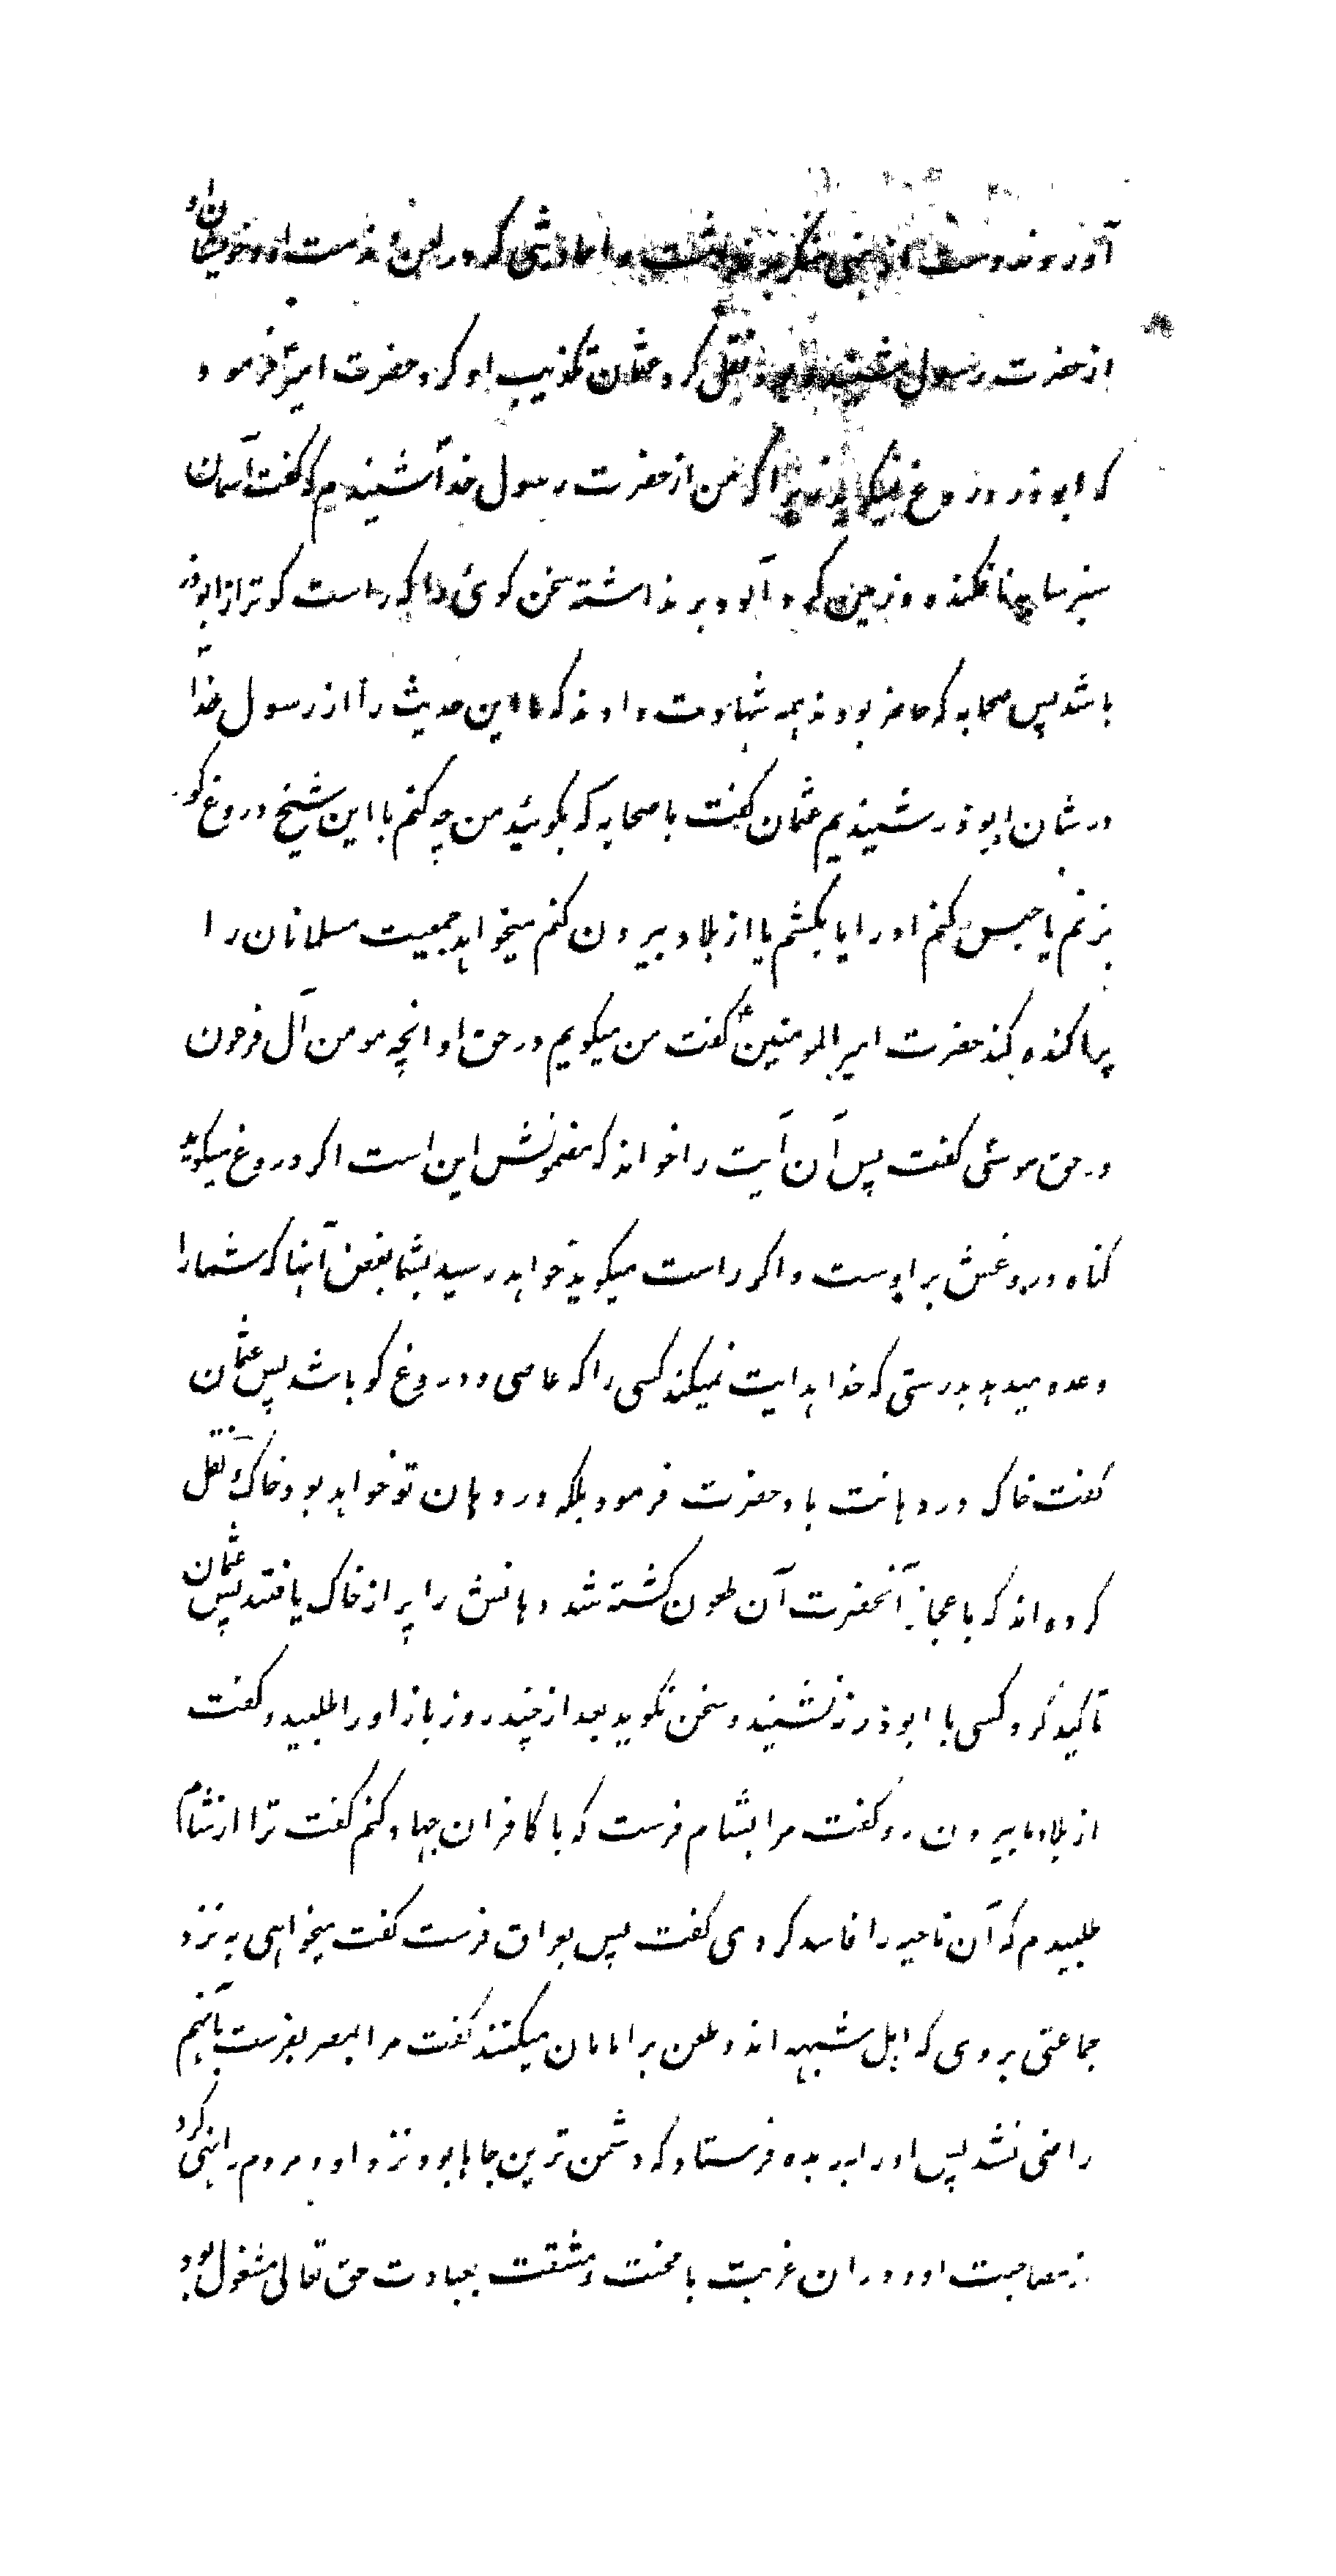 آوردند و دست از نهی منکر برنداشت و احادیثی که در لعن و مذمت او و خویشان او
از حضرت رسول شنیده بود نقل کرد عثمان تکذیب او کرد حضرت امیرؑ فرمود
که ابوذر دروغ نمیگوید زیرا که من از حضرت رسول خداؐ شنیدم که گفت آسمان
سبز سایه نیفکنده و زمین کرد آلود برنداشته سخن گوئی را که راست گوتر از ابوذر
باشد پس صحابه که حاضر بودند همه شهادت دادند که ما این حدیث را از رسول خداؐ
در شان ابوذر شنیدیم عثمان گفت با صحابه که بگوئید من چه کنم با این شیخ دروغ گو
بزنم یا حبس کنم او را یا بکشم یا از بلاد بیرون کنم میخواهد جمعیت مسلمانان را
پراکنده کند حضرت امیر المومنینؑ گفت من میگویم در حق او انچه مومن آل فرعون
در حق موسی گفت پس آن آیت را خواند که مضمونش این است اگر دروغ میگوید
گناه دروغش بر اوست و اگر راست میگوید خواهد رسید بشما بعض آنها که شما را
وعده میدهد بدرستی که خدا هدایت نمیکند کسی را که عاصی و دروغ گو باشد پس عثمان
گفت خاک در دهانت باد حضرت فرمود بلکه در دهان تو خواهد بود خاک و نقل
کرده اند که باعجاز آنحضرت آن ملعون کشته شد دهانش را پر از خاک یافتند پس عثمان
تاکید کرد کسی با ابوذر ننشیند و سخن نگوید بعد از چند روز باز او را طلبید و گفت
از بلاد ما بیرون رو گفت مرا بشام فرست که با کافران جهاد کنم گفت ترا از شام
طلبیدم که آن ناحیه را فاسد کردی گفت پس بعراق فرست گفت میخواهی به نزد
جماعتی بروی که اهل شبهه اند و طعن بر امامان میکنند گفت مرا بمصر بفرست بآنهم
راضی نشد پس او را بربده فرستاد که دشمن ترین جاها بود نزد او و مردم را نهی کرد
از مصاحبت او و در ان غربت با محنت و مشقت بعبادت حق تعالی مشغول بود